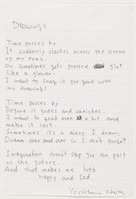 Drawings
Time passes by
It suddenly slashes across the screen
of my eyes.
Or sometimes gets pressed flat
like a flower.
I want to keep it for good with
my drawings
Time passes by
Before it fades and vanishes
I want to grab even a bit and
make it last
Sometimes it's a diary I draw,
Draw over and over so I don't forget.
Imagination doesn't stop for the past
or the future.
And that makes me both
happy and sad.
Yoshitomo Nara